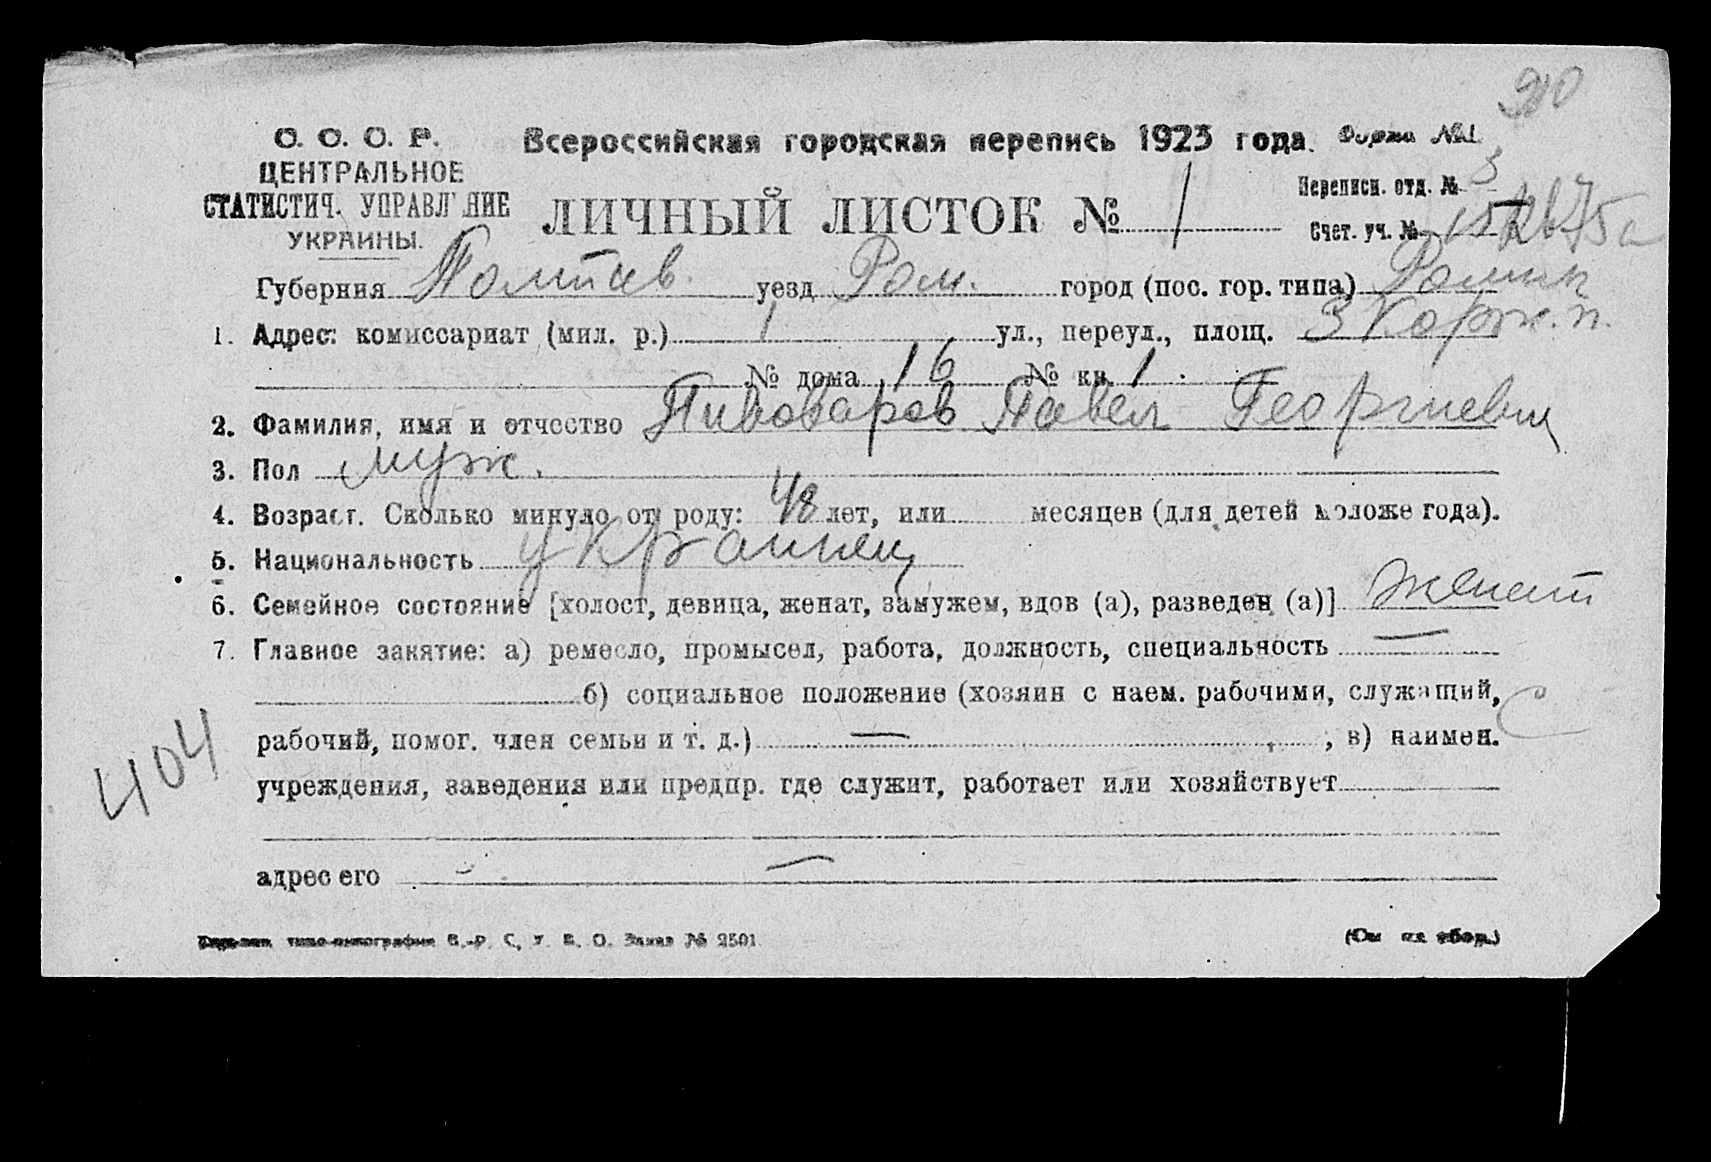 910
С. С. С. Р.
ЦЕНТРАЛЬНОЕ
СТАТИСТИЧ. УПРАВЛЕНИЕ
УКРАИНЫ.
Всероссийская городская перепись 1923 года.
Форма №1.
ЛИЧНЫЙ ЛИСТОК № 1
Переписн. отд. № 3
Счет. уч. № 15
Губерния Полтав. уезд Ром. город (пос. гор. типа) Ромны
1. Адрес: комиссариат (мил. р.) 1 ул., переул., площ. 3 Корж. п.
№ дома 16 № кв. 1
2. Фамилия, имя и отчество Пивоваров Павел Георгиевич
3. Пол муж.
4. Возраст. Сколько минуло от роду: 48 лет, или месяцев (для детей моложе года).
5. Национальность украинец
6. Семейное состояние [холост, девица, женат, замужем, вдов (а), разведен (а)] женат
7. Главное занятие: а) ремесло, промысел, работа, должность, специальность —
б) социальное положение (хозяин с наем. рабочими, служащий,
рабочий, помог. член семьи и т. д.) — , в) наимен.
учреждения, заведения или предпр. где служит, работает или хозяйствует
адрес его —
404
Заказ № 2501
(См на обор.)